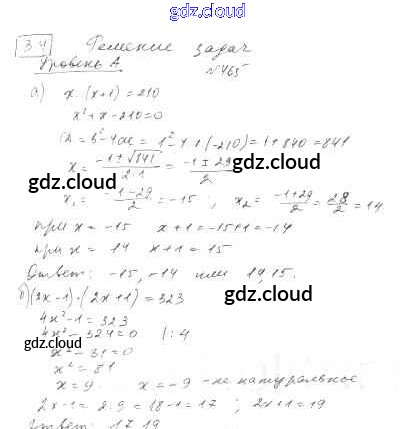 gdz.cloud
34 Решение задач
Уровень А
№465
а) x·(x+1)=210
x²+x-210=0
D=b²-4ac=1²-4·1·(-210)=1+840=841
x=(-1±√841)/(2·1)=(-1±29)/2
gdz.cloud gdz.cloud
x₁=(-1-29)/2=-15; x₂=(-1+29)/2=28/2=14
при x=-15 x+1=-15+1=-14
при x=14 x+1=15
gdz.cloud
Ответ: -15,-14 или 14,15.
б)(2x-1)·(2x+1)=323
gdz.cloud
4x²-1=323
4x²-324=0 |:4
gdz.cloud
x²-81=0
x²=81
x=9 x=-9 -не натуральное
2x-1=2·9=18-1=17; 2x+1=19
Ответ: 17,19